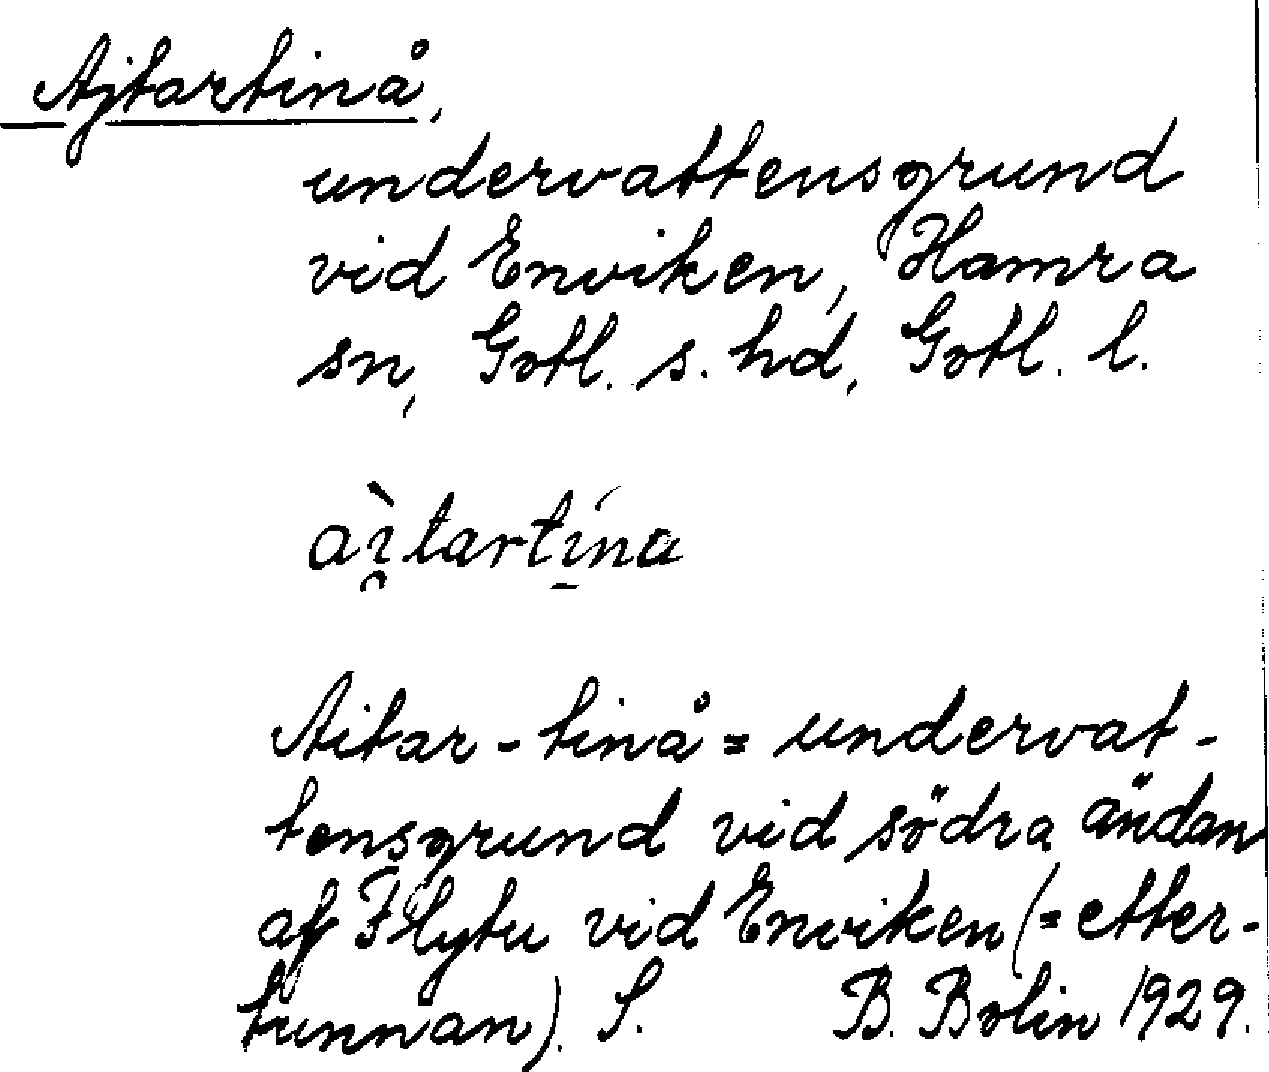 Ajtartinå,
undervattensgrund
vid Enviken, Hamra
sn, Gotl. s. hd, Gotl. l.
aì̯tartı̱́na
Aitar-tinå = undervat-
tensgrund vid södra ändan
af Flytu vid Enviken (= etter-
tunnan). S. B. Bolin 1929.